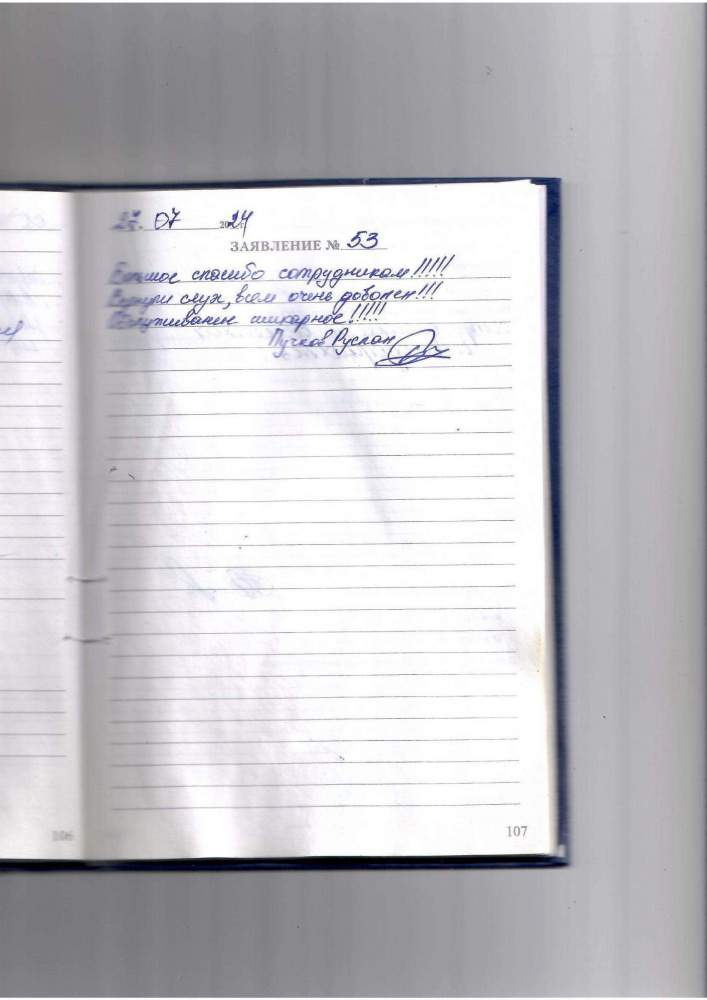 07 2024
ЗАЯВЛЕНИЕ № 53
Большое спасибо сотрудникам!!!!!
Вернули слух, всем очень доволен!!!
Обслуживание шикарное!!!!!
Пучков Руслан
106
107